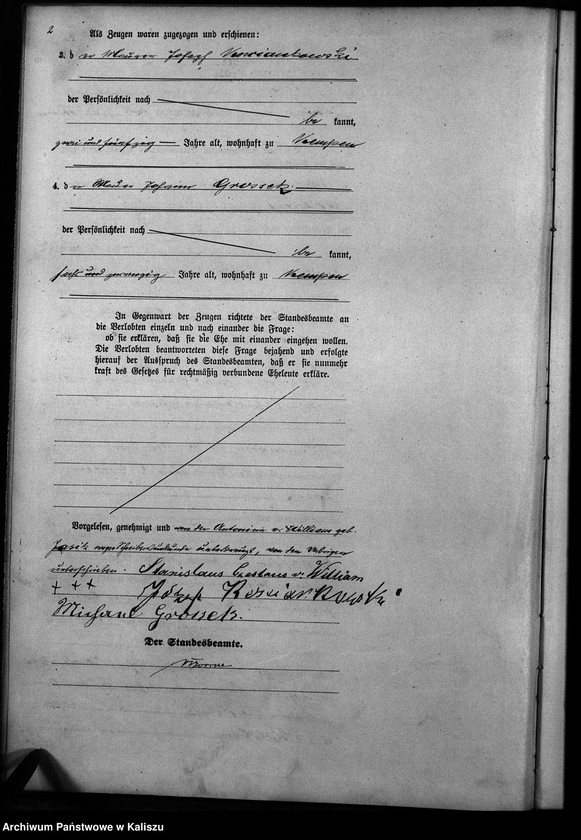 2
Als Zeugen waren zugezogen und erschienen:
3. der Maurer Joseph
der Persönlichkeit nach
be kannt,
zwei und fünfzig Jahre alt, wohnhaft zu Kempen
4. der Maurer Johann Grossek.
der Persönlichkeit nach
be kannt,
sechs und zwanzig Jahre alt, wohnhaft zu Kempen
In Gegenwart der Zeugen richtete der Standesbeamte an
die Verlobten einzeln und nach einander die Frage:
ob sie erklären, daß sie die Ehe mit einander eingehen wollen.
Die Verlobten beantworteten diese Frage bejahend und erfolgte
hierauf der Ausspruch des Standesbeamten, daß er sie nunmehr
kraft des Gesetzes für rechtmäßig verbundene Eheleute erkläre.
Vorgelesen, genehmigt und von der Antonina v. William geb.
wegen Schreibensunkunde unterkreuzt, von den Uebrigen
unterschrieben. Stanislaus v. William
+ + +
Grossek.
Der Standesbeamte.
Archiwum Państwowe w Kaliszu